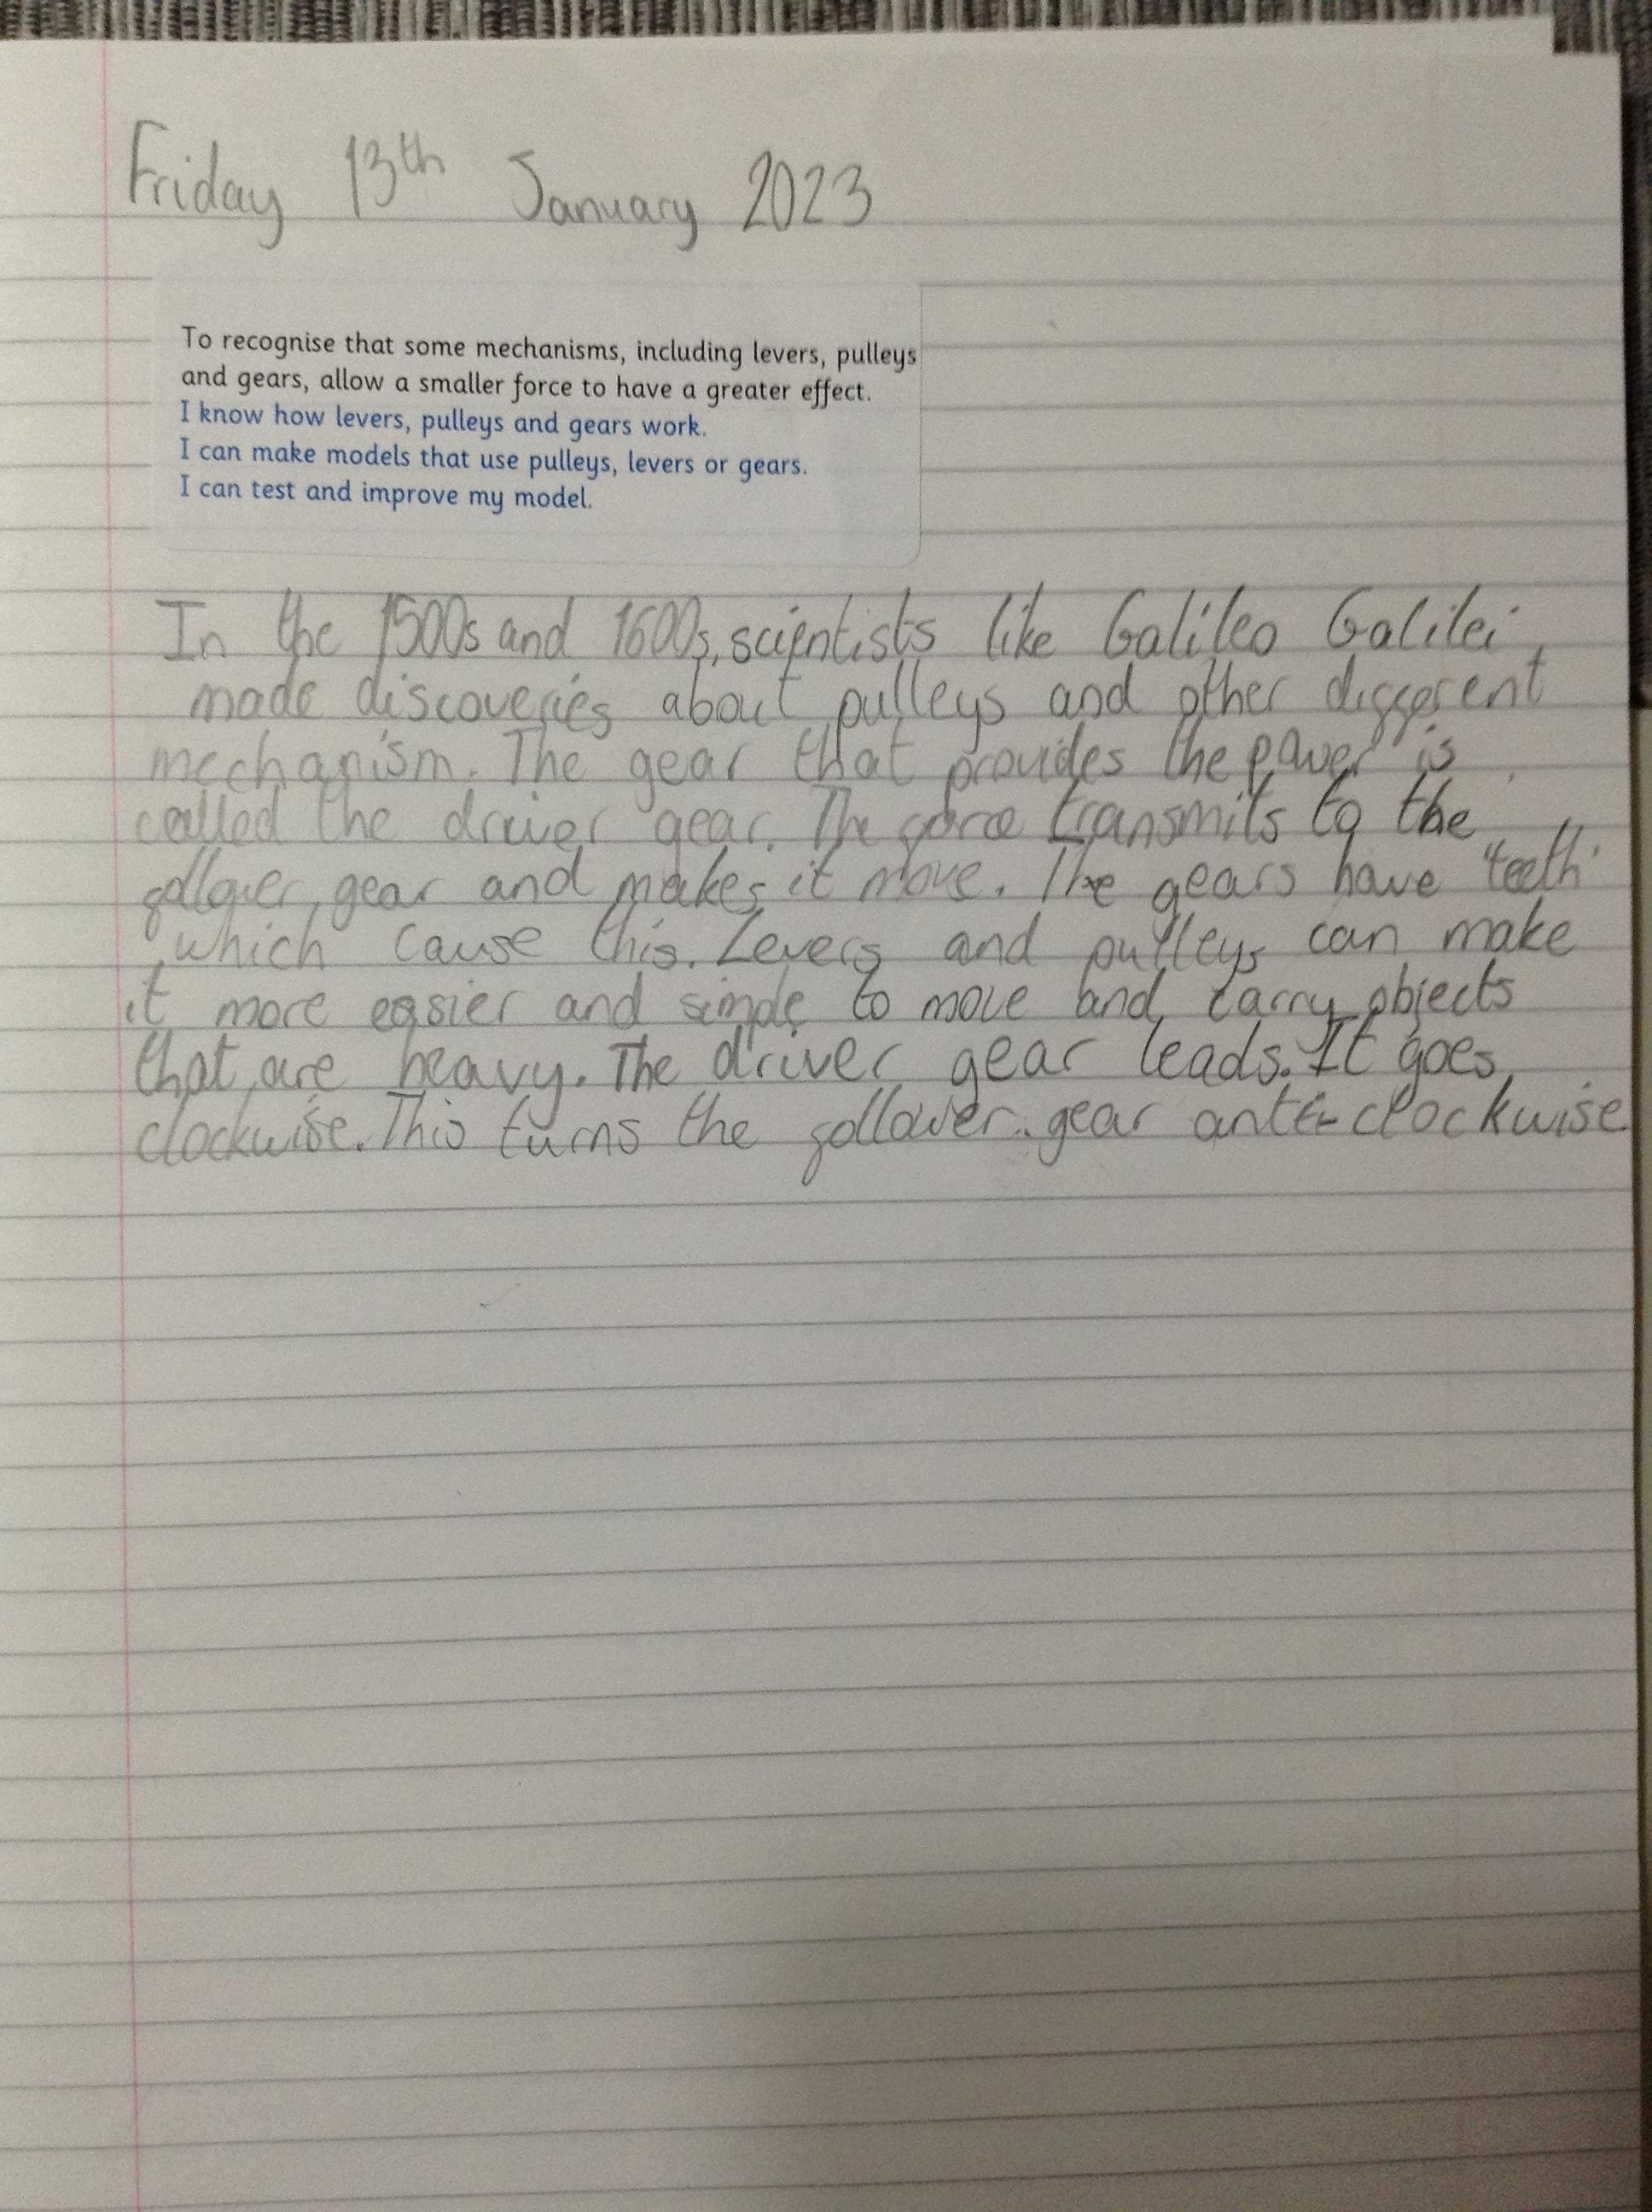 Friday 13th January 2023
To recognise that some mechanisms, including levers, pulleys
and gears, allow a smaller force to have a greater effect.
I know how levers, pulleys and gears work.
I can make models that use pulleys, levers or gears.
I can test and improve my model.
In the 1500s and 1600s, scientists like Galileo Galilei,
made discoveries about pulleys and other different
mechanism. The gear that provides the power is
called the driver gear. The force transmits to the
follower gear and makes it move. The gears have "teeth"
which cause this. Levers and pulleys can make
it more easier and simple to move and carry objects
that are heavy. The driver gear leads. It goes
clockwise. This turns the follower gear anti-clockwise.